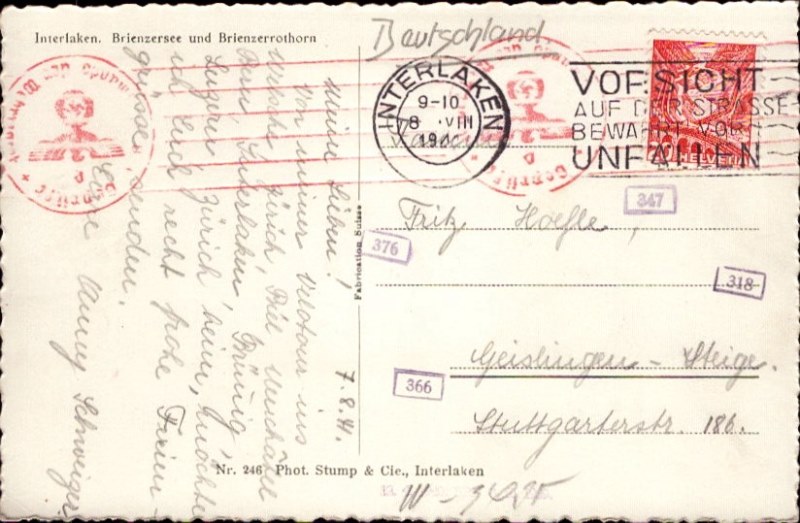 Interlaken. Brienzersee und Brienzerrothorn
Deutschland
INTERLAKEN
9-10
8 VIII
VORSICHT
AUF DER STRASSE
BEWAHRT VOR
UNFÄLLEN
Geprüft
Fritz Hoefle,
Geislingen - Steige.
Stuttgarterstr. 186.
347
376
318
366
Fabrication Suisse
7.8.41.
Meine Lieben!
Von meiner Velotour ins
Welsche Zürich Biel Neuchâtel
Bern Interlaken Brünig
Luzern Zürich heim, möchte
ich Euch recht frohe Ferien-
grüsse senden.
Eure Anny Schweizer
Nr. 246 Phot. Stump & Cie., Interlaken